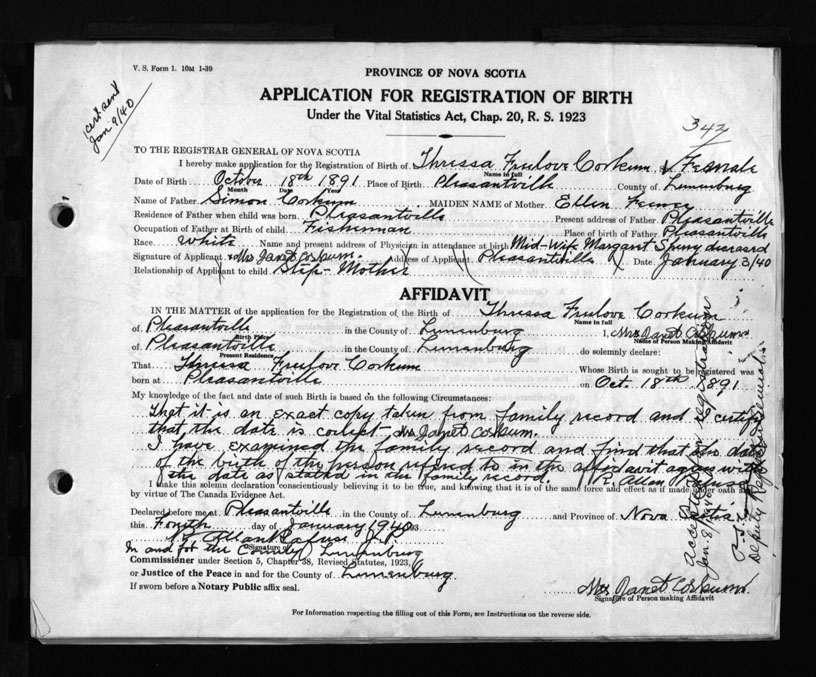 V. S. Form 1. 10M 1-39
cert sent
Jan 9/40
PROVINCE OF NOVA SCOTIA
APPLICATION FOR REGISTRATION OF BIRTH
Under the Vital Statistics Act, Chap. 20, R. S. 1923
342
TO THE REGISTRAR GENERAL OF NOVA SCOTIA
I hereby make application for the Registration of Birth of Thressa Freelove Corkum Female
Name in full
Date of Birth October 18th 1891 Place of Birth Pleasantville County of Lunenburg
Month Date Year
Name of Father Simon Corkum MAIDEN NAME of Mother Ellen
Residence of Father when child was born Pleasantville Present address of Father Pleasantville
Occupation of Father at Birth of child Fisherman Place of birth of Father Pleasantville
Race White Name and present address of Physician in attendance at birth Mid-Wife Margaret deceased
Signature of Applicant Mrs Janet Corkum. Address of Applicant Pleasantville Date January 3/40
Relationship of Applicant to child Step-Mother
AFFIDAVIT
IN THE MATTER of the application for the Registration of the Birth of Thressa Freelove Corkum
Name in full
of Pleasantville in the County of Lunenburg I, Mrs Janet Corkum
Birth Place Name of Person Making Affidavit
of Pleasantville in the County of Lunenburg do solemnly declare:
Present Residence
That Thressa Freelove Corkum Whose Birth is sought to be registered was
born at Pleasantville on Oct. 18th 1891
My knowledge of the fact and date of such Birth is based on the following Circumstances:
That it is an exact copy taken from family record and I certify
that the date is correct Mrs Janet Corkum.
I have examined the family record and find that the date
of the birth of the person referred to in the affidavit agrees with
the date as stated in the family record. R. Allan Rafuse
I make this solemn declaration conscientiously believing it to be true, and knowing that it is of the same force and effect as if made under oath and
by virtue of The Canada Evidence Act.
Declared before me at Pleasantville in the County of Lunenburg and Province of Nova Scotia
this Fourth day of January 1940
R. Allan Rafuse J.P.
Signature of
In and for the County Lunenburg
Commissioner under Section 5, Chapter 38, Revised Statutes, 1923,
or Justice of the Peace in and for the County of Lunenburg.
If sworn before a Notary Public affix seal.
Mrs Janet Corkum.
Signature of Person making Affidavit
For Information respecting the filling out of this Form, see Instructions on the reverse side.
accepted for registration
Jan 8/1940
Deputy Registrar General